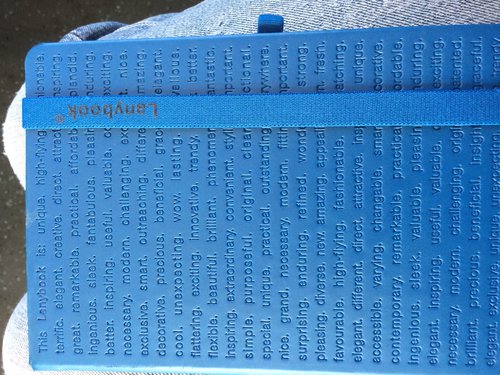 This Lanybook is: unique, high-flying, fashionable,
terrific, elegant, creative, direct, attractive, inspiring,
great, remarkable, practical, affordable, splendid,
ingenious, sleek, fantabulous, pleasing, enduring,
better, inspiring, useful, valuable, exciting,
necessary, modern, challenging, nice,
exclusive, smart, outreaching, different, amazing,
decorative, precious, beneficial, graceful, elegant,
cool, unexpecting, wow, lasting, marvellous,
flattering, exciting, innovative, trendy, better,
flexible, beautiful, brilliant, phenomenal, fantastic,
inspiring, extraordinary, convenient, stylish, important,
simple, purposeful, original, clean, functional,
special, unique, practical, outstanding, everywhere,
nice, grand, necessary, modern, fitting, important,
surprising, enduring, refined, wonderful, strong,
pleasing, diverse, new, amazing, appealing, fresh,
favourable, high-flying, fashionable, matching,
elegant, different, direct, attractive, unique,
accessible, varying, changeable, smart, decorative,
contemporary, remarkable, practical, affordable,
ingenious, sleek, valuable, pleasing, enduring,
elegant, inspiring, useful, valuable, exciting,
necessary, modern, challenging, original, patented,
brilliant, precious, beneficial, insightful, graceful,
Lanybook®